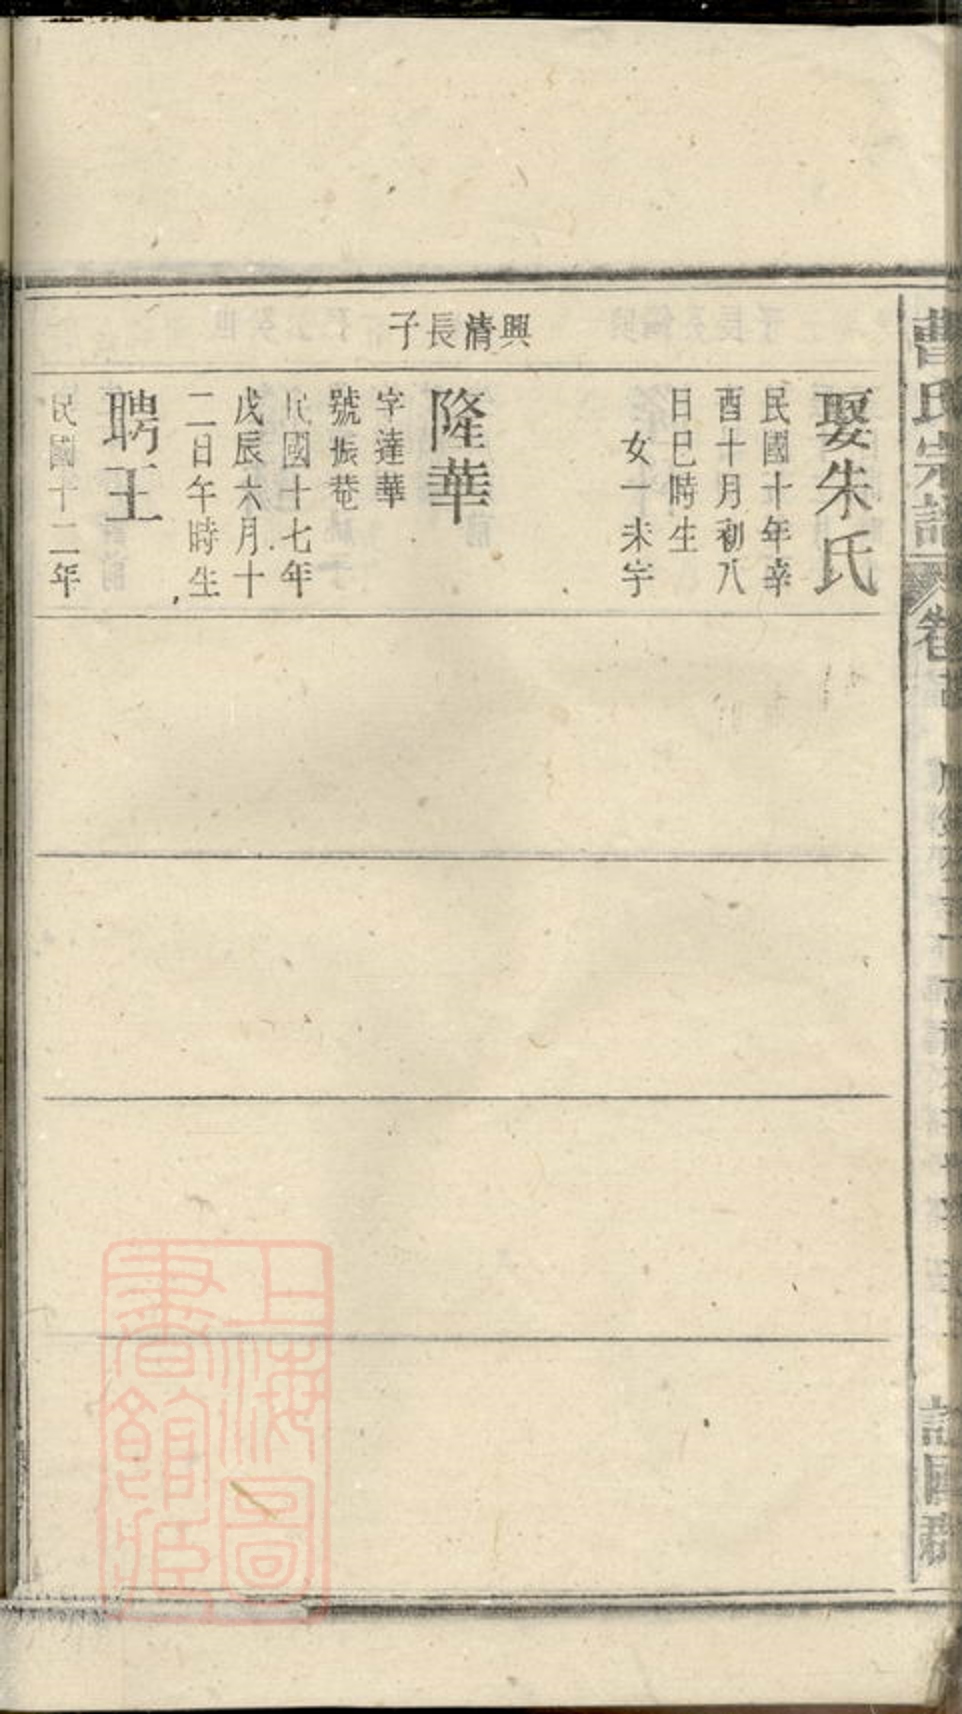 曹氏宗譜
卷
娶朱氏
民國十年辛
酉十月初八
日巳時生
女一未字
興清長子
隆華
字達華
號振菴
民國十七年
戊辰六月十
二日午時生
聘王
民國十二年
上海圖
書館藏